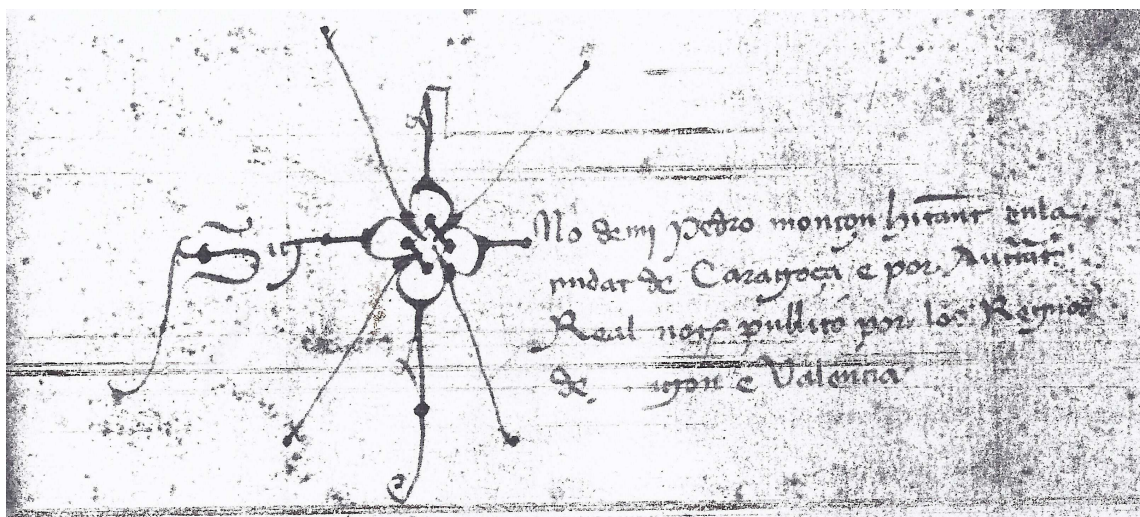 Sig No de mi Pedro monçon hitant en la
ciudat de Caragoça e por Auctat
Real not publico por los Regnos
de agon e Valencia